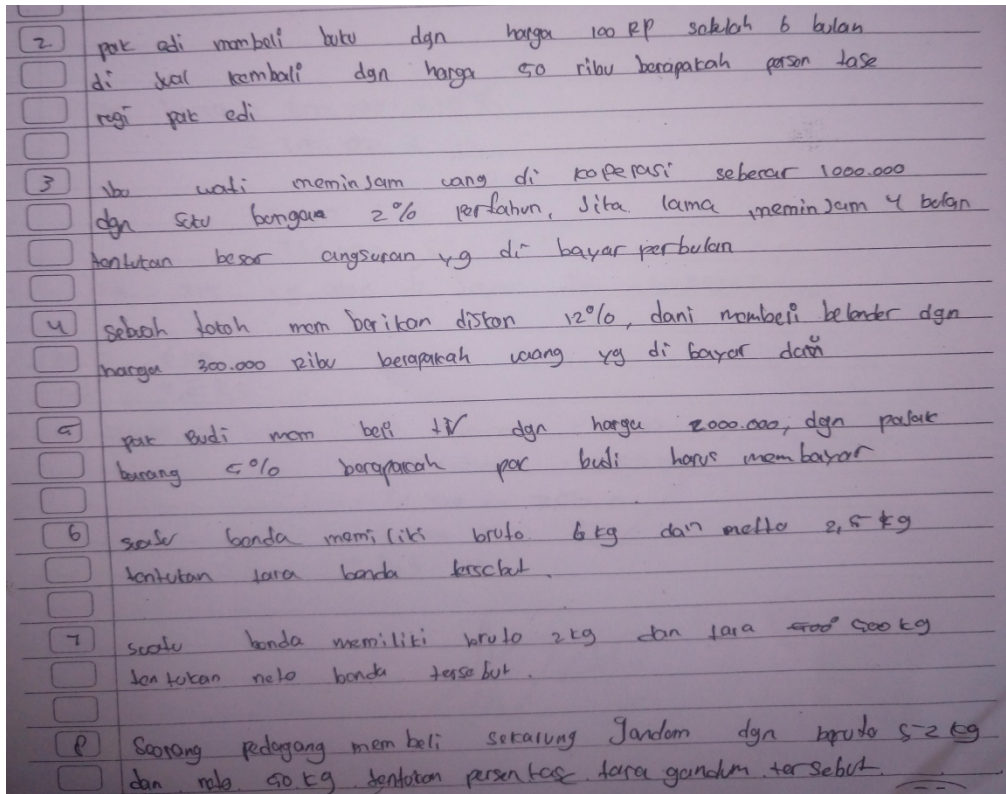 2 pak edi membeli buku dgn harga 100 RP setelah 6 bulan
di jual kembali dgn harga 50 ribu berapakah persen tase
rugi pak edi
3 ibo wati meminjam uang di koperasi sebesar 1000.000
dgn suku bongaa 2% pertahun, Jika lama meminjam 4 bulan
tentukan besar angsuran yg di bayar perbulan
4 sebuah tokoh mem berikan diskon 12%, dani membeli belender dgn
harga 300.000 Ribu berapakah uang yg di bayar dani
5 pak Budi mem beli tV dgn harga 2000.000, dgn pajak
barang 5% berapakah pak budi harus membayar
6 suatu benda memiliki bruto 6 kg dan netto 2,5 kg
tentukan tara benda tersebut.
7 suatu benda memiliki bruto 2 kg dan tara 500 kg
ten tukan neto benda tersebut.
8 Seorang pedagang mem beli sekarung gandom dgn bruto 52 kg
dan neto 50 kg tentukan persentase tara gandum tersebut.